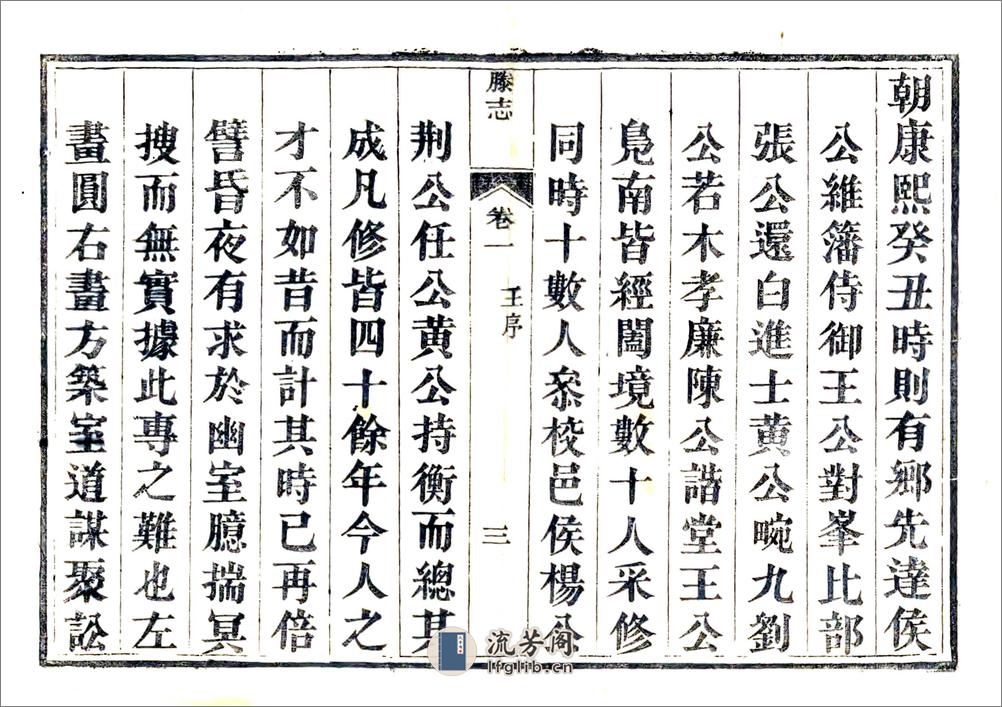 朝康熙癸丑時則有鄉先達侯
公維籓侍御王公對峯比部
張公還白進士黃公畹九劉
公若木孝廉陳公諧堂王公
鳧南皆經闔境數十人采修
同時十數人叅校邑侯楊公
滕志
卷一
王序
三
荆公任公黃公持衡而總其
成凡修皆四十餘年今人之
才不如昔而計其時已再倍
譬昏夜有求於幽室臆揣冥
搜而無實據此專之難也左
畫圓右畫方築室道謀聚訟
流芳阁
lfglib.cn